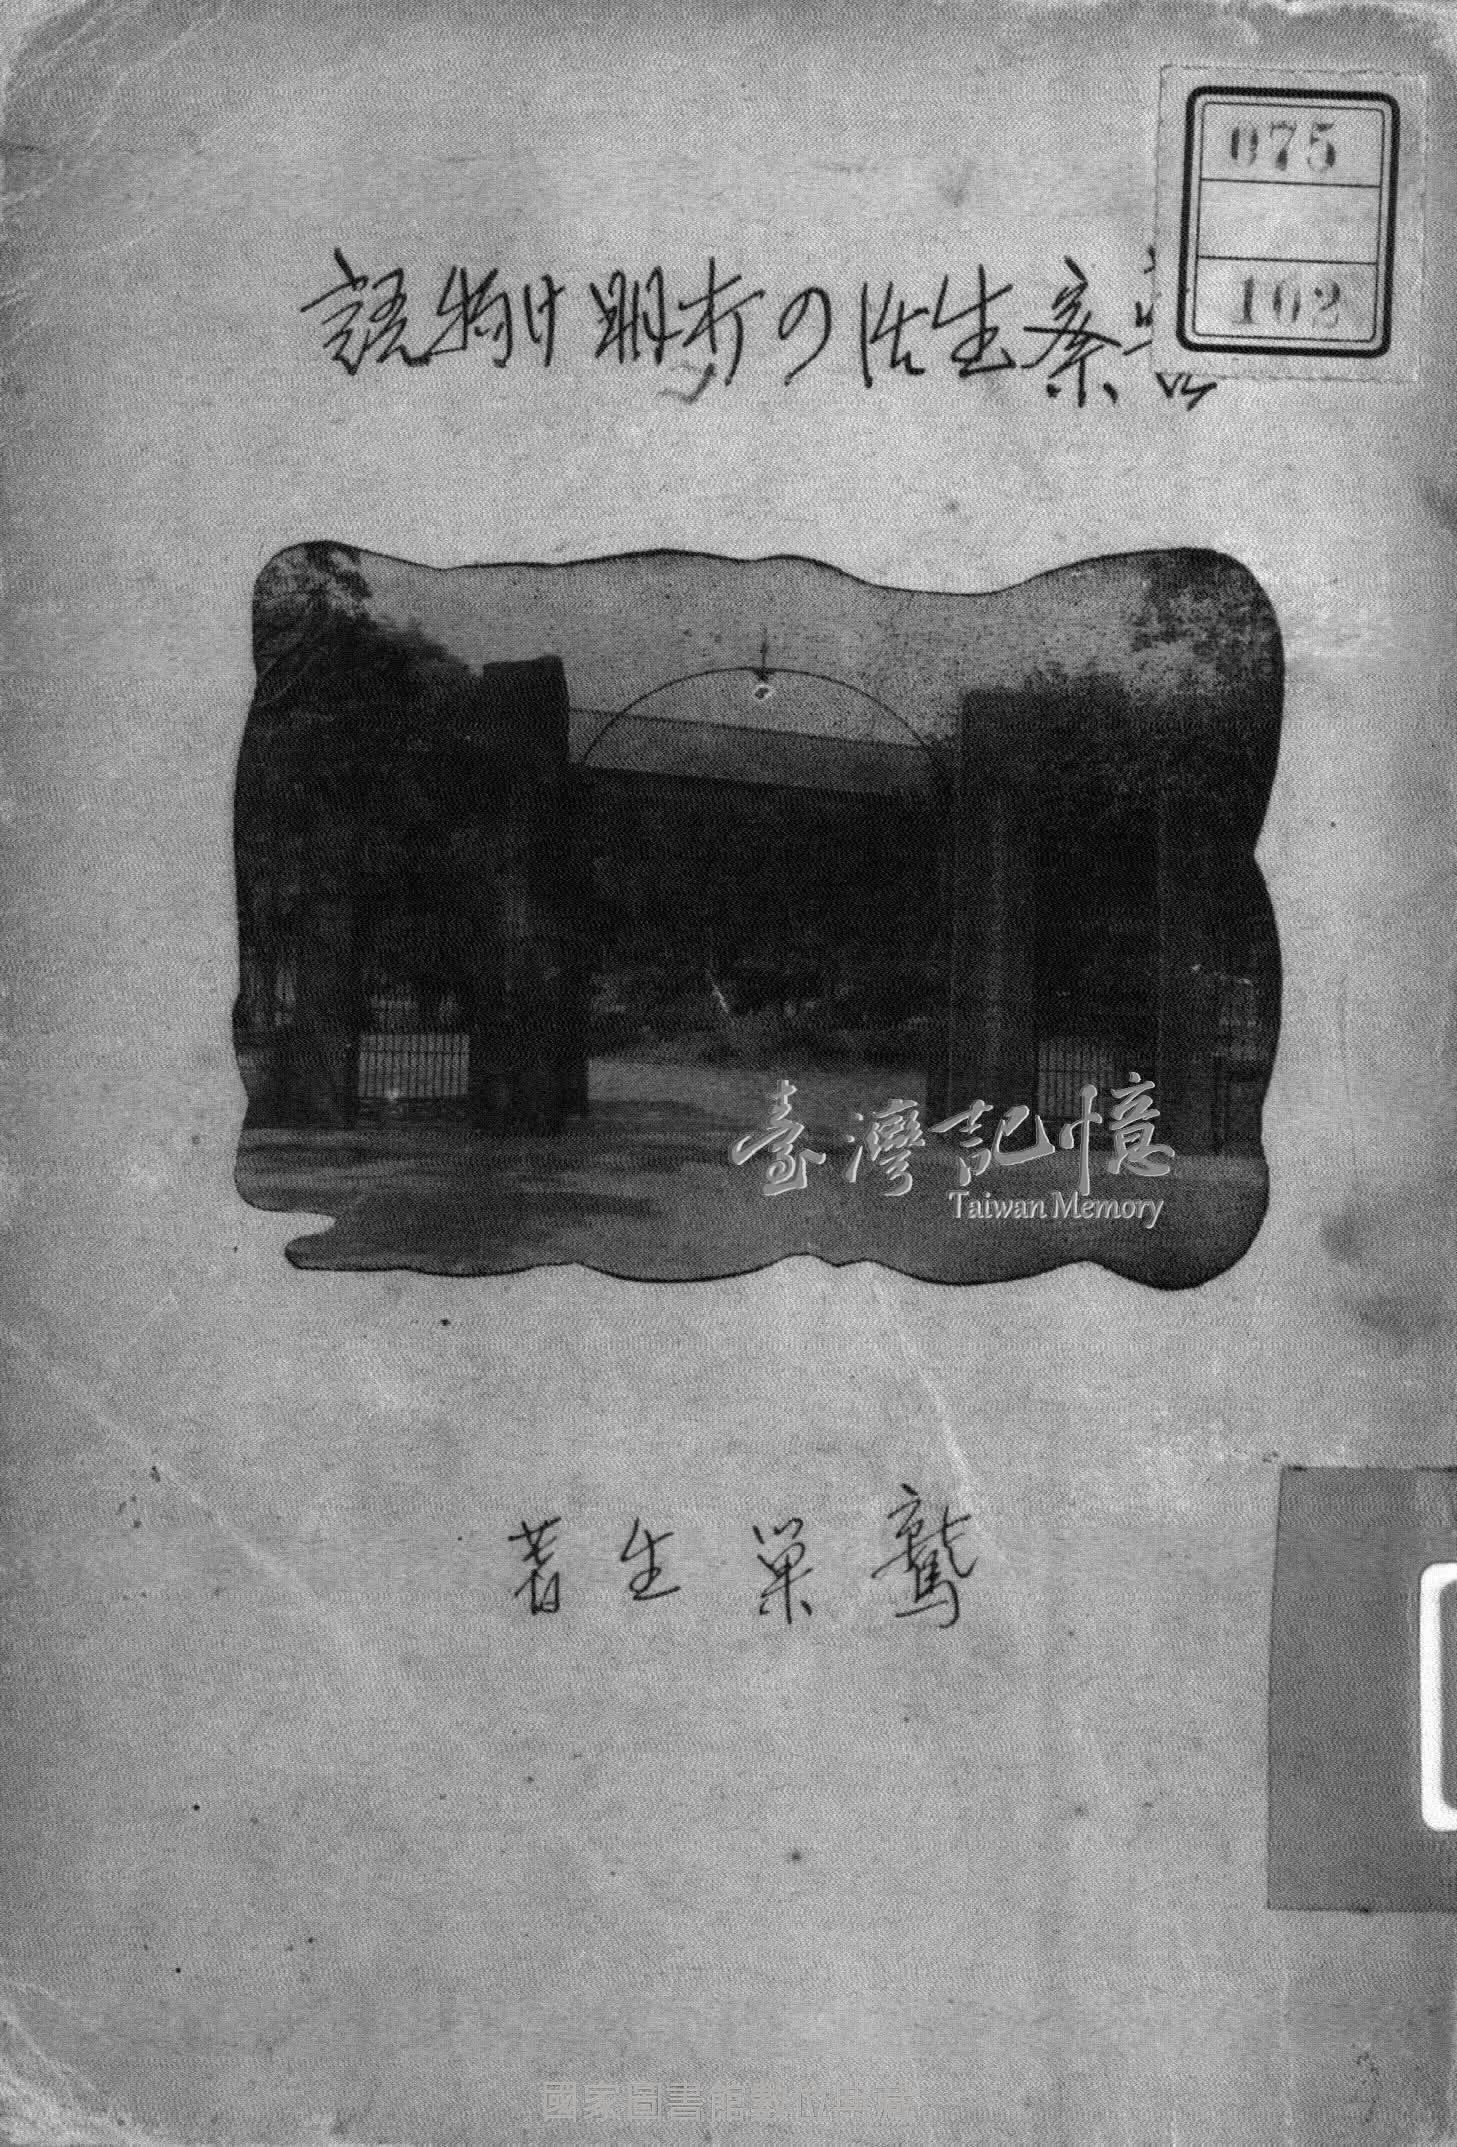 075
102
察生活の打明け物語
臺灣記憶
Taiwan Memory
鷲巣生著
國家圖書館數位典藏